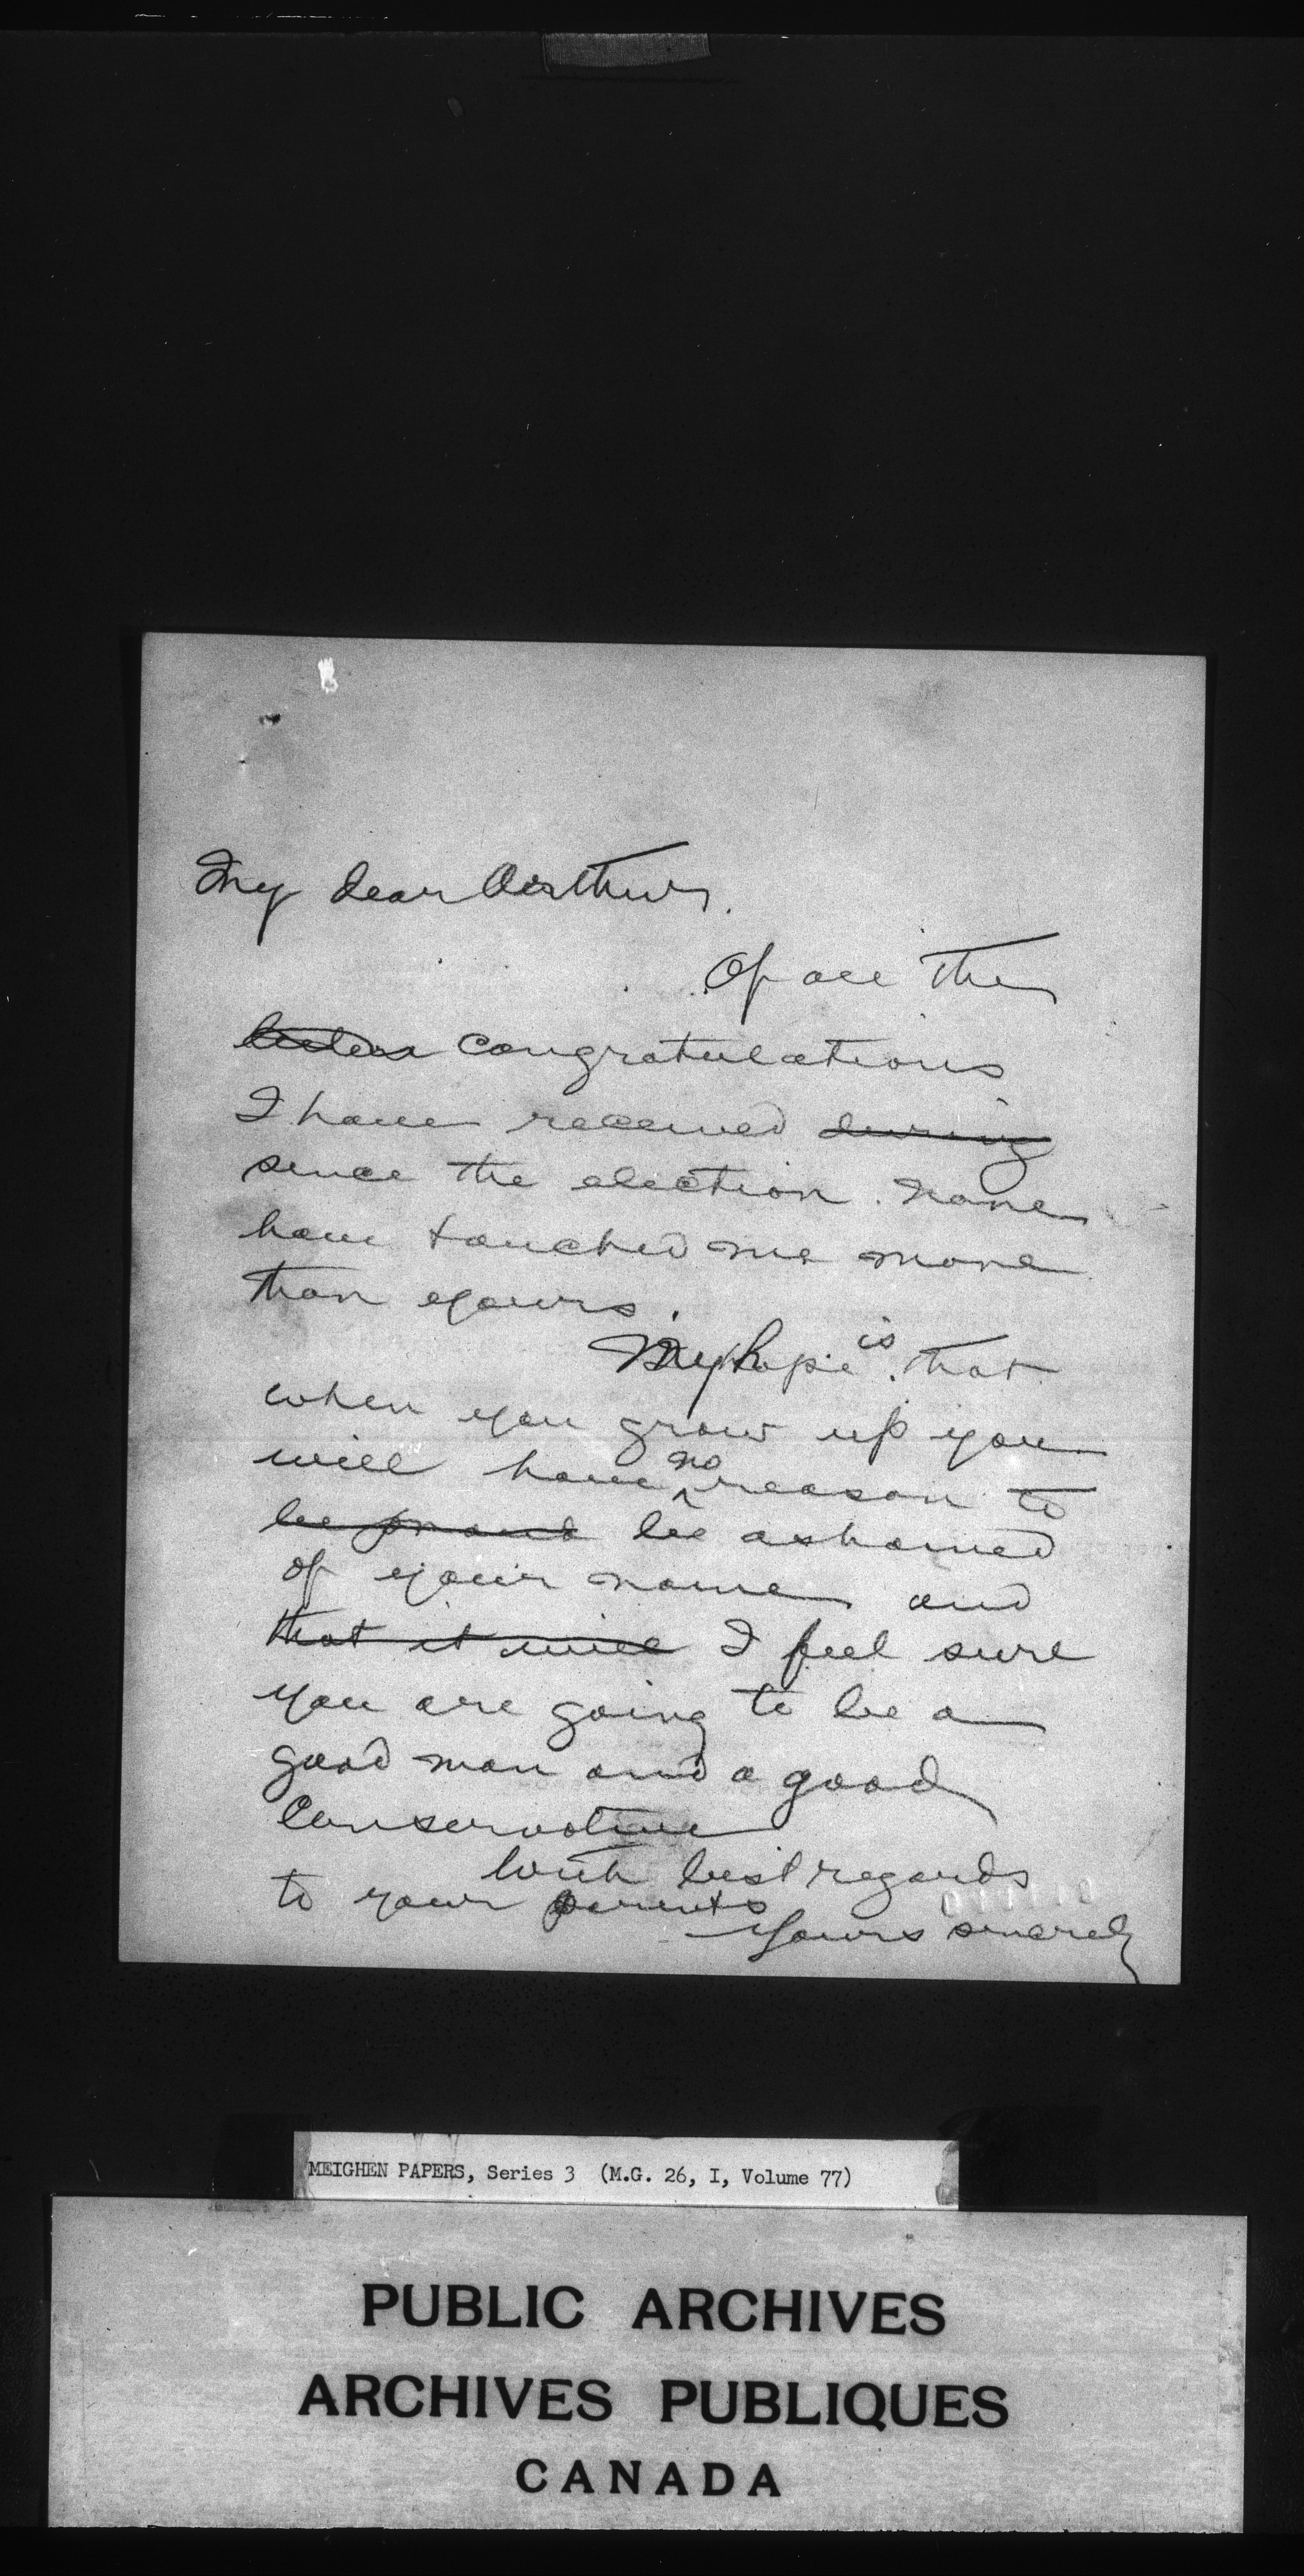 My dear Arthur.
Of all the
letters congratulations
I have received during
since the election. none
have touched me more
than yours.
My hope is that
when you grow up you
will have no reason to
be proud be ashamed
of your name and
that it will I feel sure
you are going to be a
good man and a good
Conservative
With best regards
to your parents
Yours sincerely
MEIGHEN PAPERS, Series 3 (M.G. 26, I, Volume 77)
PUBLIC ARCHIVES
ARCHIVES PUBLIQUES
CANADA